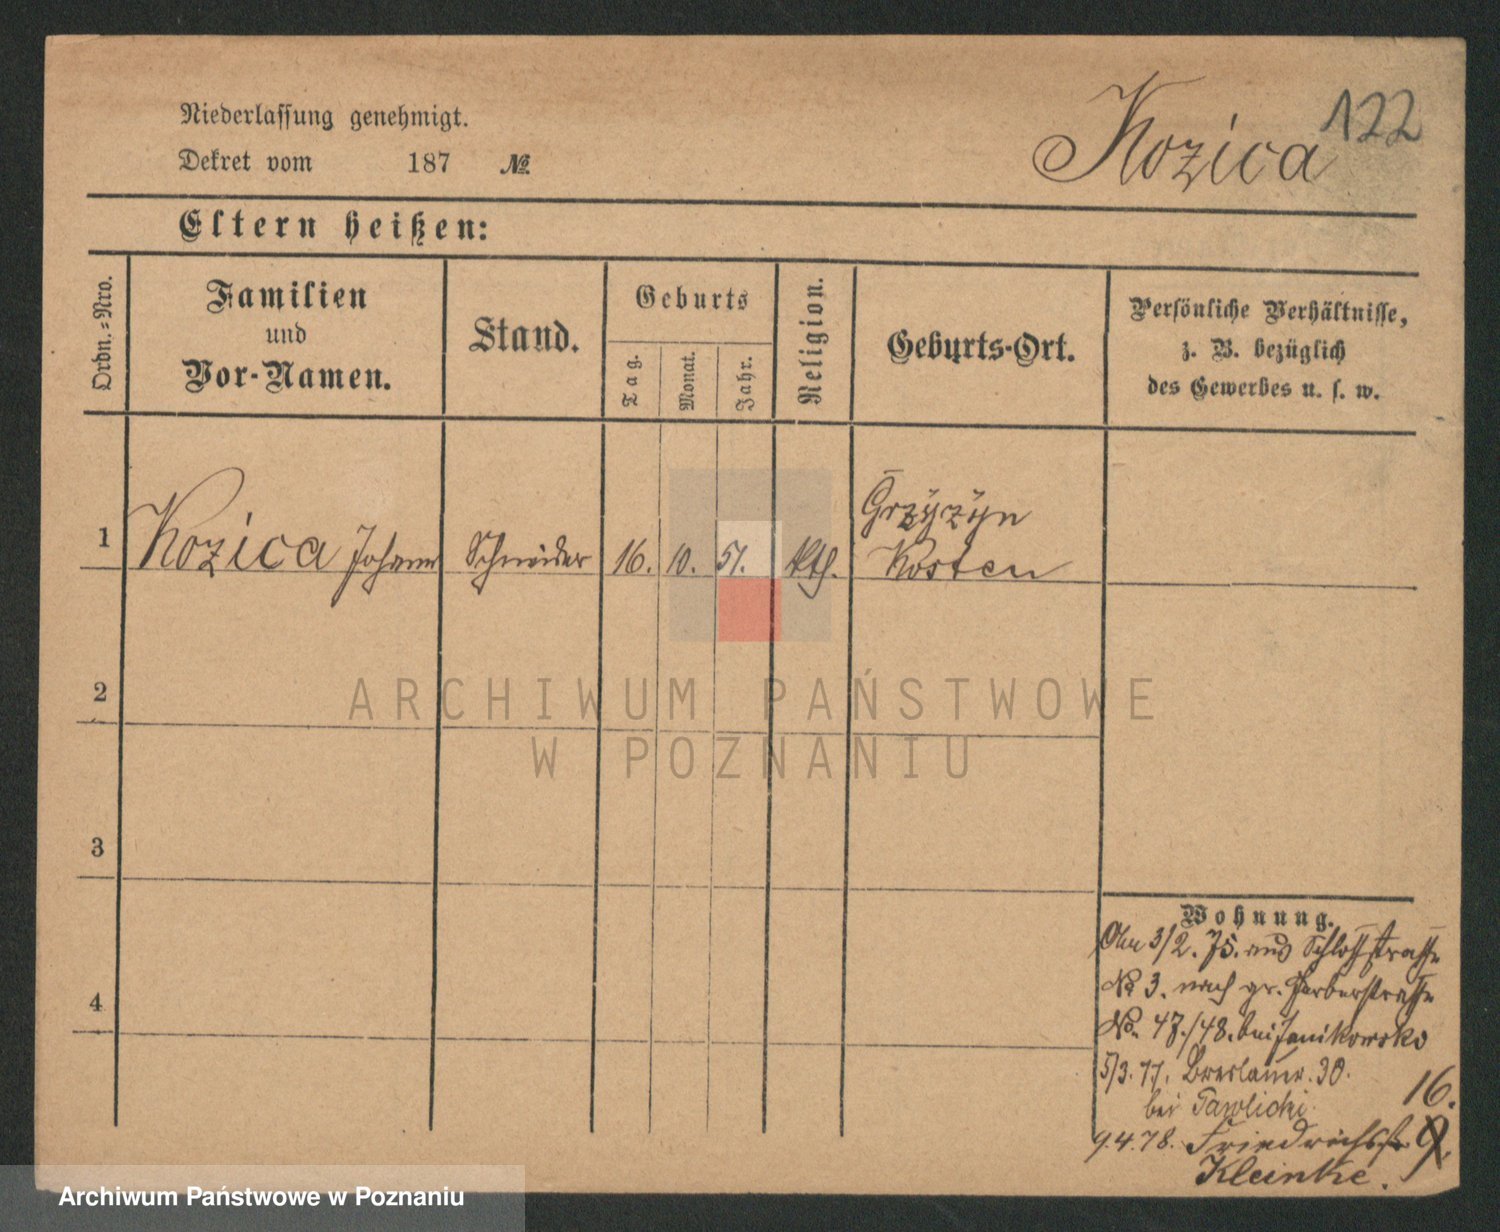 Niederlassung genehmigt.
Dekret vom 187 №
Kozica 122
Eltern heißen:
Ordn.=Nro.
Familien
und
Vor-Namen.
Stand.
Geburts
Tag.
Monat.
Jahr.
Religion.
Geburts-Ort.
Persönliche Verhältnisse,
z. B. bezüglich
des Gewerbes u. s. w.
1 Kozica Johann Schneider 16. 10. 51. kth. Grzyzyn
Kosten
2
3
4
Wohnung.
3/2. 75. aus Schloßstrasse
No 3. nach gr. Gerberstrasse
No. 47./48. bei Janikowsko
5/3. 77. Breslauer. 30.
bei Pawlicki
16.
9.4.78. Friedrichsstr 9.
Kleinke.
ARCHIWUM PAŃSTWOWE
W POZNANIU
Archiwum Państwowe w Poznaniu